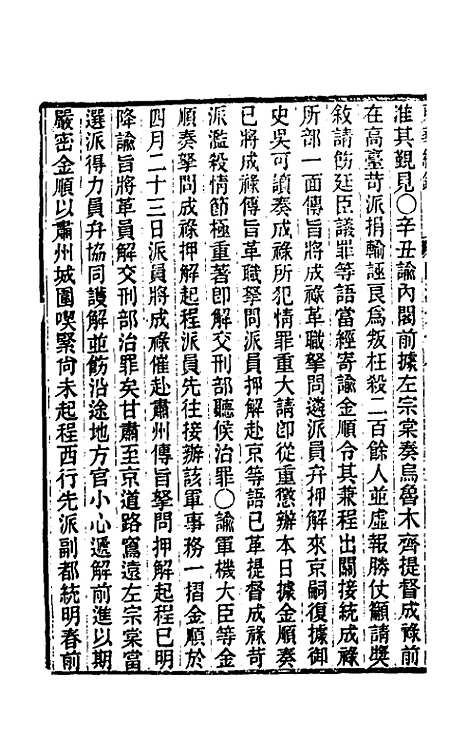 准其覲見〇辛丑諭內閣前據左宗棠奏烏魯木齊提督成祿前
在高臺苛派捐輸誣良為叛枉殺二百餘人並虛報勝仗籲請獎
敘請飭廷臣議罪等語當經寄諭金順令其兼程出關接統成祿
所部一面傳旨將成祿革職拏問遴派員弁押解來京嗣復據御
史吳可讀奏成祿所犯情罪重大請卽從重懲辦本日據金順奏
已將成祿傳旨革職拏問派員押解赴京等語已革提督成祿苛
派濫殺情節極重著卽解交刑部聽候治罪〇諭軍機大臣等金
順奏拏問成祿押解起程派員先往接辦該軍事務一摺金順於
四月二十三日派員將成祿催赴肅州傳旨拏問押解起程已明
降諭旨將革員解交刑部治罪矣甘肅至京道路窵遠左宗棠當
選派得力員弁協同護解並飭沿途地方官小心遞解前進以期
嚴密金順以肅州城圍喫緊尙未起程西行先派副都統明春前